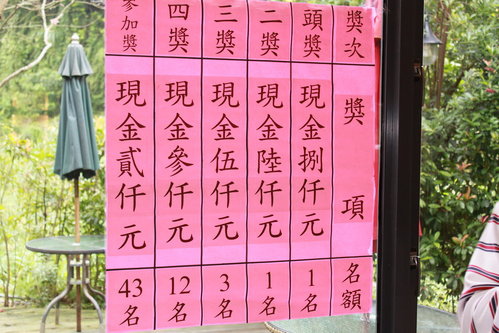 獎次
獎項
名額
頭獎
現金捌仟元
1名
二獎
現金陸仟元
1名
三獎
現金伍仟元
3名
四獎
現金參仟元
12名
參加獎
現金貳仟元
43名